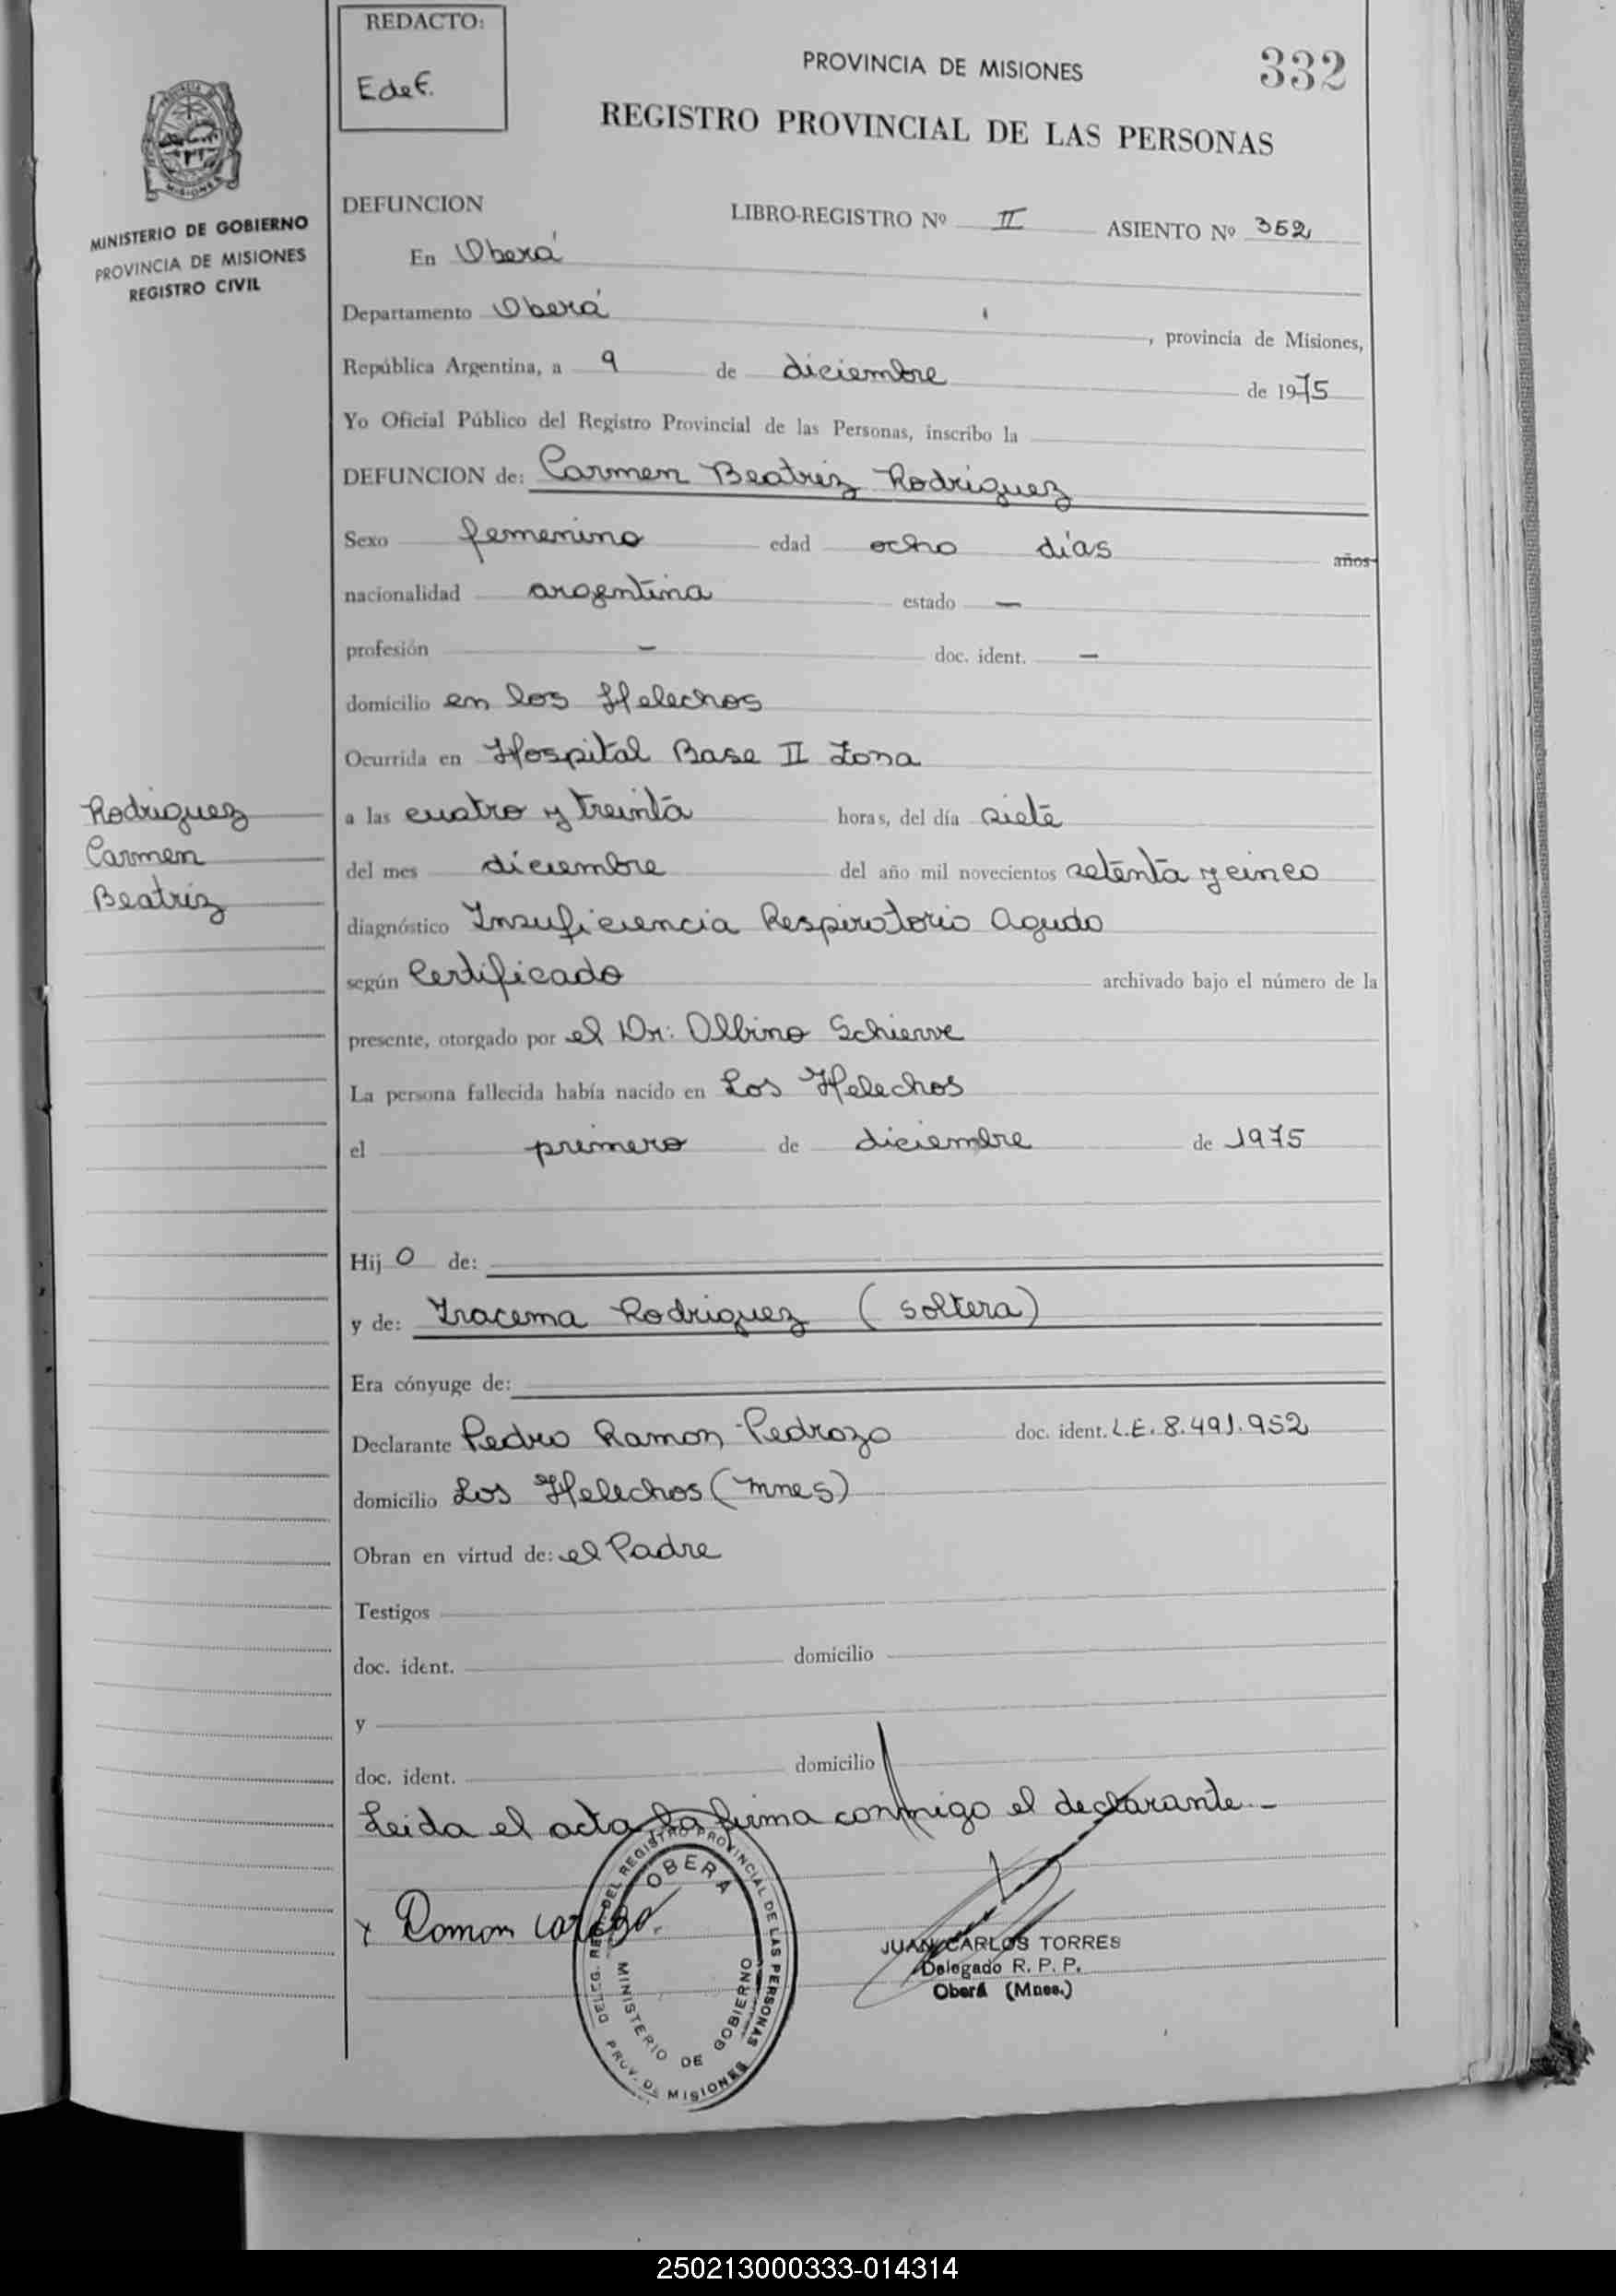 REDACTO:
E de F.
PROVINCIA DE MISIONES
332
REGISTRO PROVINCIAL DE LAS PERSONAS
MISIONES
MINISTERIO DE GOBIERNO
PROVINCIA DE MISIONES
REGISTRO CIVIL
DEFUNCION LIBRO-REGISTRO Nº II ASIENTO Nº 352
En Oberá
Departamento Oberá, provincia de Misiones,
República Argentina, a 9 de diciembre de 1975
Yo Oficial Público del Registro Provincial de las Personas, inscribo la
DEFUNCION de: Carmen Beatriz Rodriguez
Sexo femenino edad ocho días años
nacionalidad argentina estado —
profesión — doc. ident. —
domicilio en los Helechos
Ocurrida en Hospital Base II Zona
a las cuatro y treinta horas, del día siete
del mes diciembre del año mil novecientos setenta y cinco
diagnóstico Insuficiencia Respiratoria Aguda
según Certificado archivado bajo el número de la
presente, otorgado por el Dr: Albino
La persona fallecida había nacido en Los Helechos
el primero de diciembre de 1975
Rodriguez
Carmen
Beatriz
Hij O de:
y de: Iracema Rodriguez (soltera)
Era cónyuge de:
Declarante Pedro Ramon Pedrozo doc. ident. L.E. 8.491.952
domicilio Los Helechos (Mnes)
Obran en virtud de: el Padre
Testigos
doc. ident. domicilio
y
doc. ident. domicilio
Leida el acta la firma conmigo el declarante.-
x Ramon
DEL REGISTRO PROVINCIAL DE LAS PERSONAS
OBERA
MINISTERIO DE GOBIERNO
PROV. DE MISIONES
JUAN CARLOS TORRES
Delegado R. P. P.
Oberá (Mnes.)
250213000333-014314